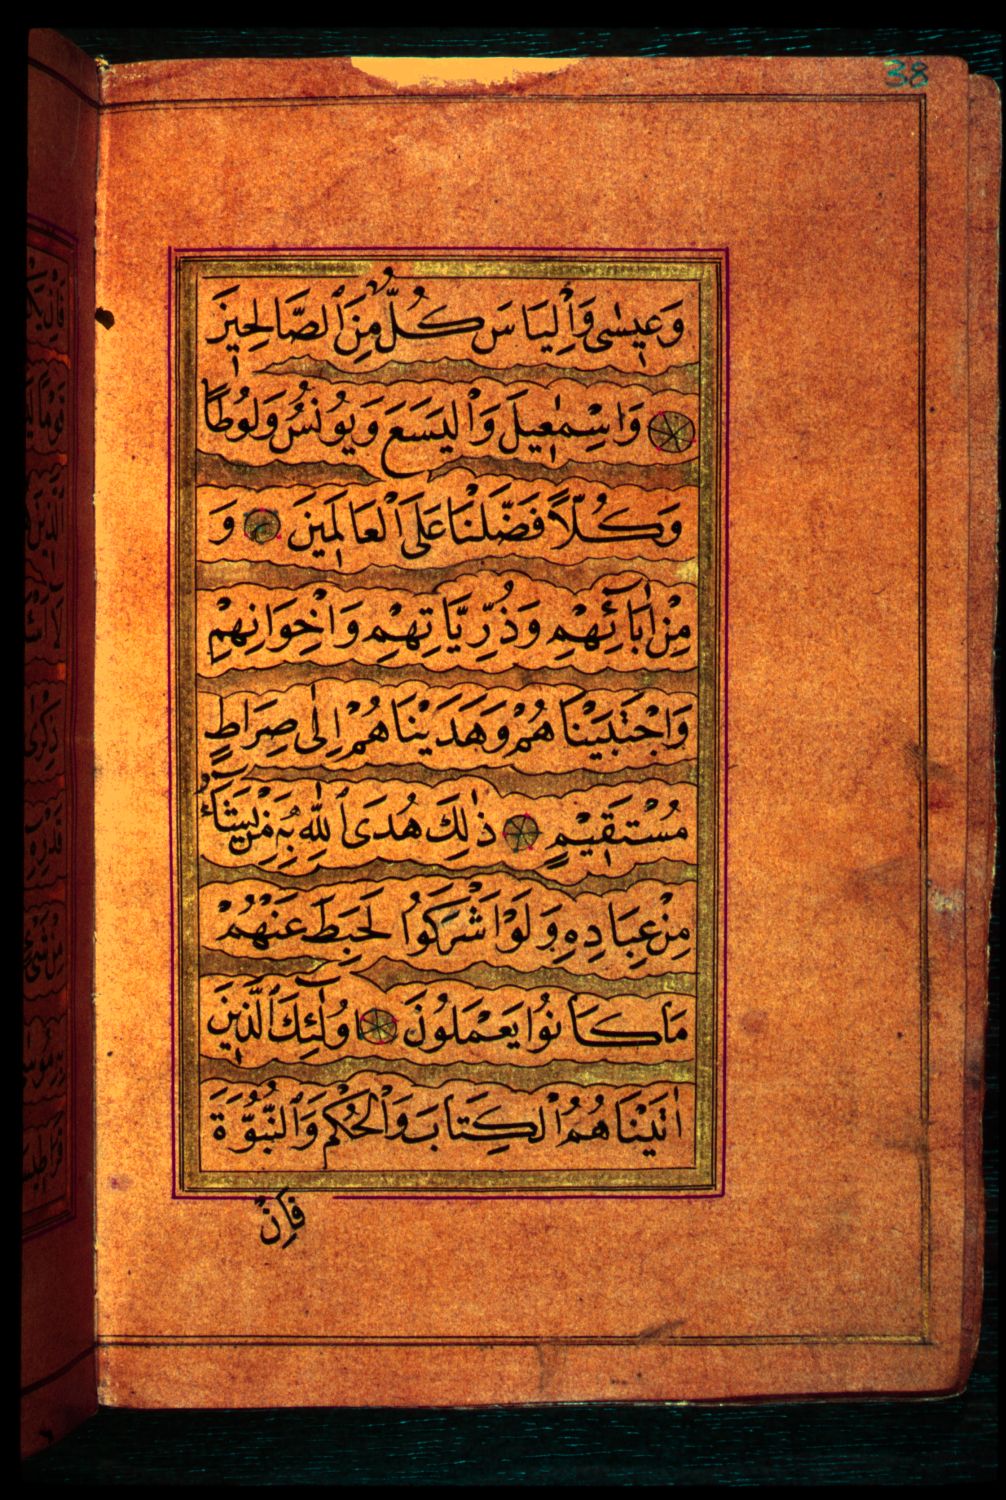 38
وَعِيسٰى وَاِلْيَاسَ كُلٌّ مِنَ ٱلصَّالِحِينَ
وَاِسْمٰعِيلَ وَالْيَسَعَ وَيُونُسَ وَلُوطًا
وَكُلًّا فَضَّلْنَا عَلَى الْعَالَمِينَ وَ
مِنْ اٰبَآئِهِمْ وَذُرِّيَّاتِهِمْ وَاِخْوَانِهِمْ
وَاجْتَبَيْنَاهُمْ وَهَدَيْنَاهُمْ اِلٰى صِرَاطٍ
مُسْتَقِيمٍ ذٰلِكَ هُدَى ٱللّٰهِ يَهْدِى بِهٖ مَنْ يَشَآءُ
مِنْ عِبَادِهِ وَلَوْ اَشْرَكُوا لَحَبِطَ عَنْهُمْ
مَا كَانُوا يَعْمَلُونَ اُولٰٓئِكَ ٱلَّذِينَ
اٰتَيْنَاهُمُ الْكِتَابَ وَالْحُكْمَ وَٱلنُّبُوَّةَ
فَاِنْ